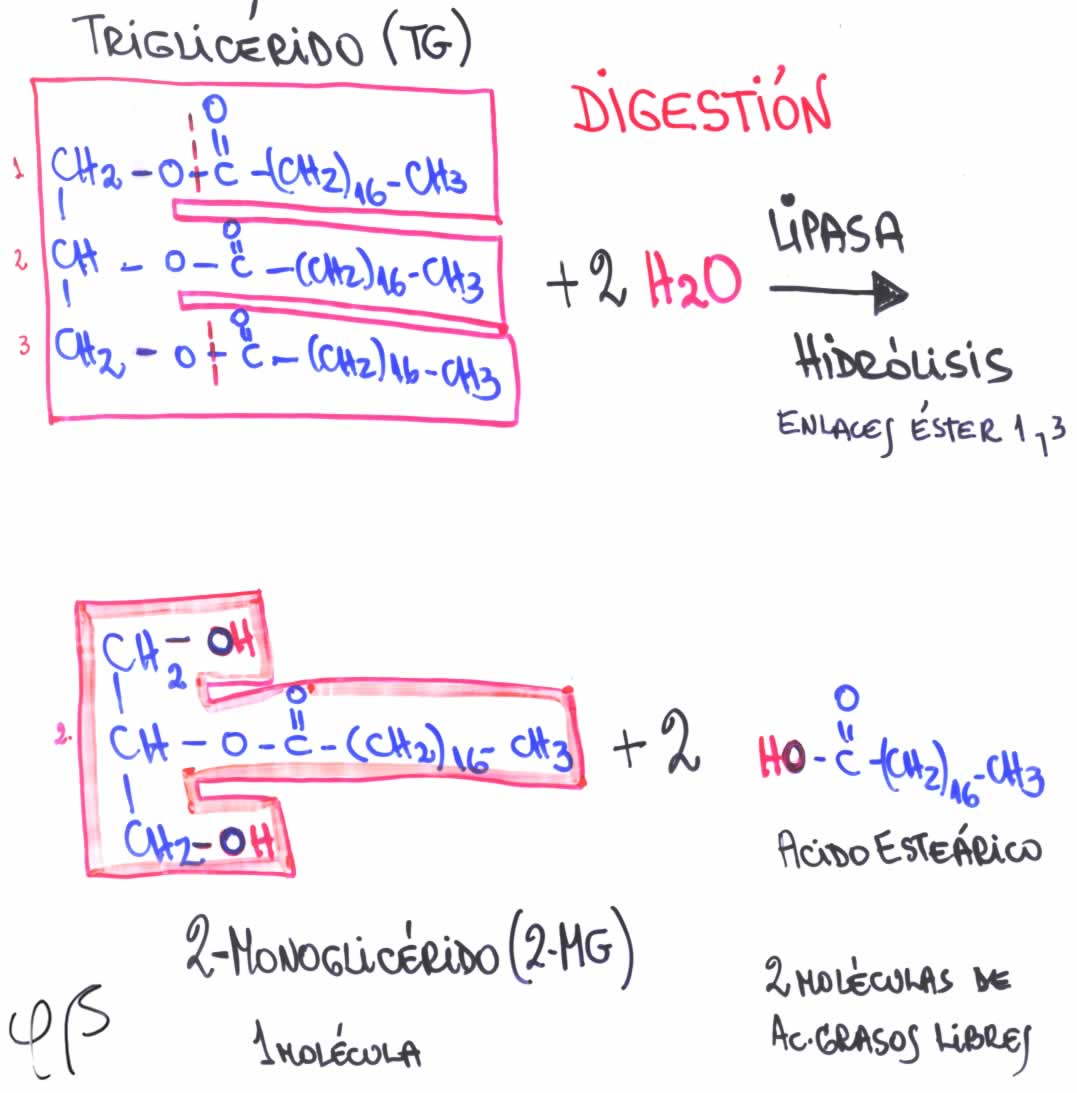 TRIGLICÉRIDO (TG)
DIGESTIÓN
O
||
1 CH2 - O + C - (CH2)16 - CH3
|
O
||
2 CH - O - C - (CH2)16 - CH3
|
O
||
3 CH2 - O + C - (CH2)16 - CH3
+ 2 H2O
LIPASA
HIDRÓLISIS
ENLACES ÉSTER 1,3
CH2 - OH
|
O
||
2. CH - O - C - (CH2)16 - CH3
|
CH2 - OH
+ 2
O
||
HO - C - (CH2)16 - CH3
ACIDO ESTEÁRICO
2-MONOGLICÉRIDO (2-MG)
1 MOLÉCULA
2 MOLÉCULAS DE
AC. GRASOS LIBRES